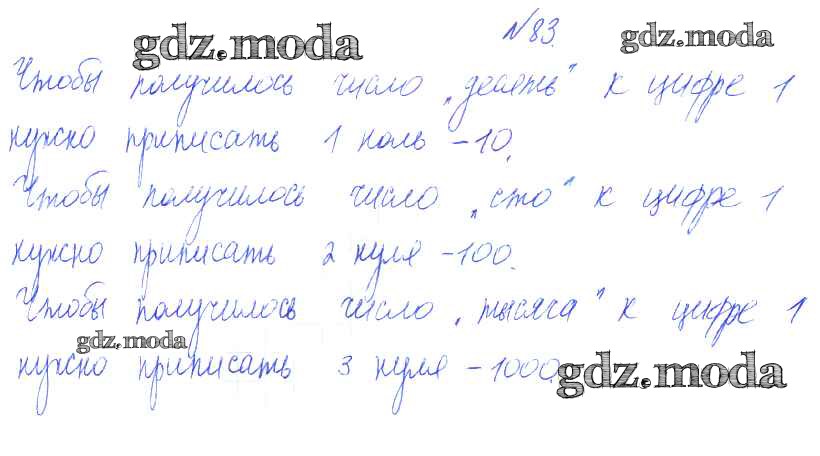 gdz.moda №83. gdz.moda
Чтобы получилось число „десять“ к цифре 1
нужно приписать 1 ноль – 10.
Чтобы получилось число „сто“ к цифре 1
нужно приписать 2 нуля – 100.
Чтобы получилось число „тысяча“ к цифре 1
gdz.moda
нужно приписать 3 нуля – 1000. gdz.moda